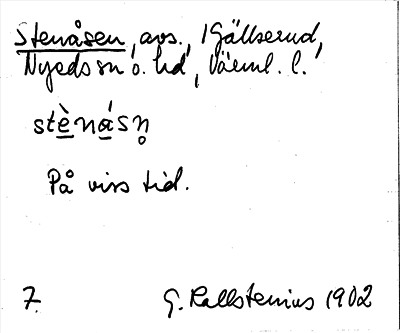 Stenåsen, avs., Gällserud,
Nyeds sn o. hd, Värml. l.
stènásn̥
På viss tid.
7. G. Kallstenius 1902